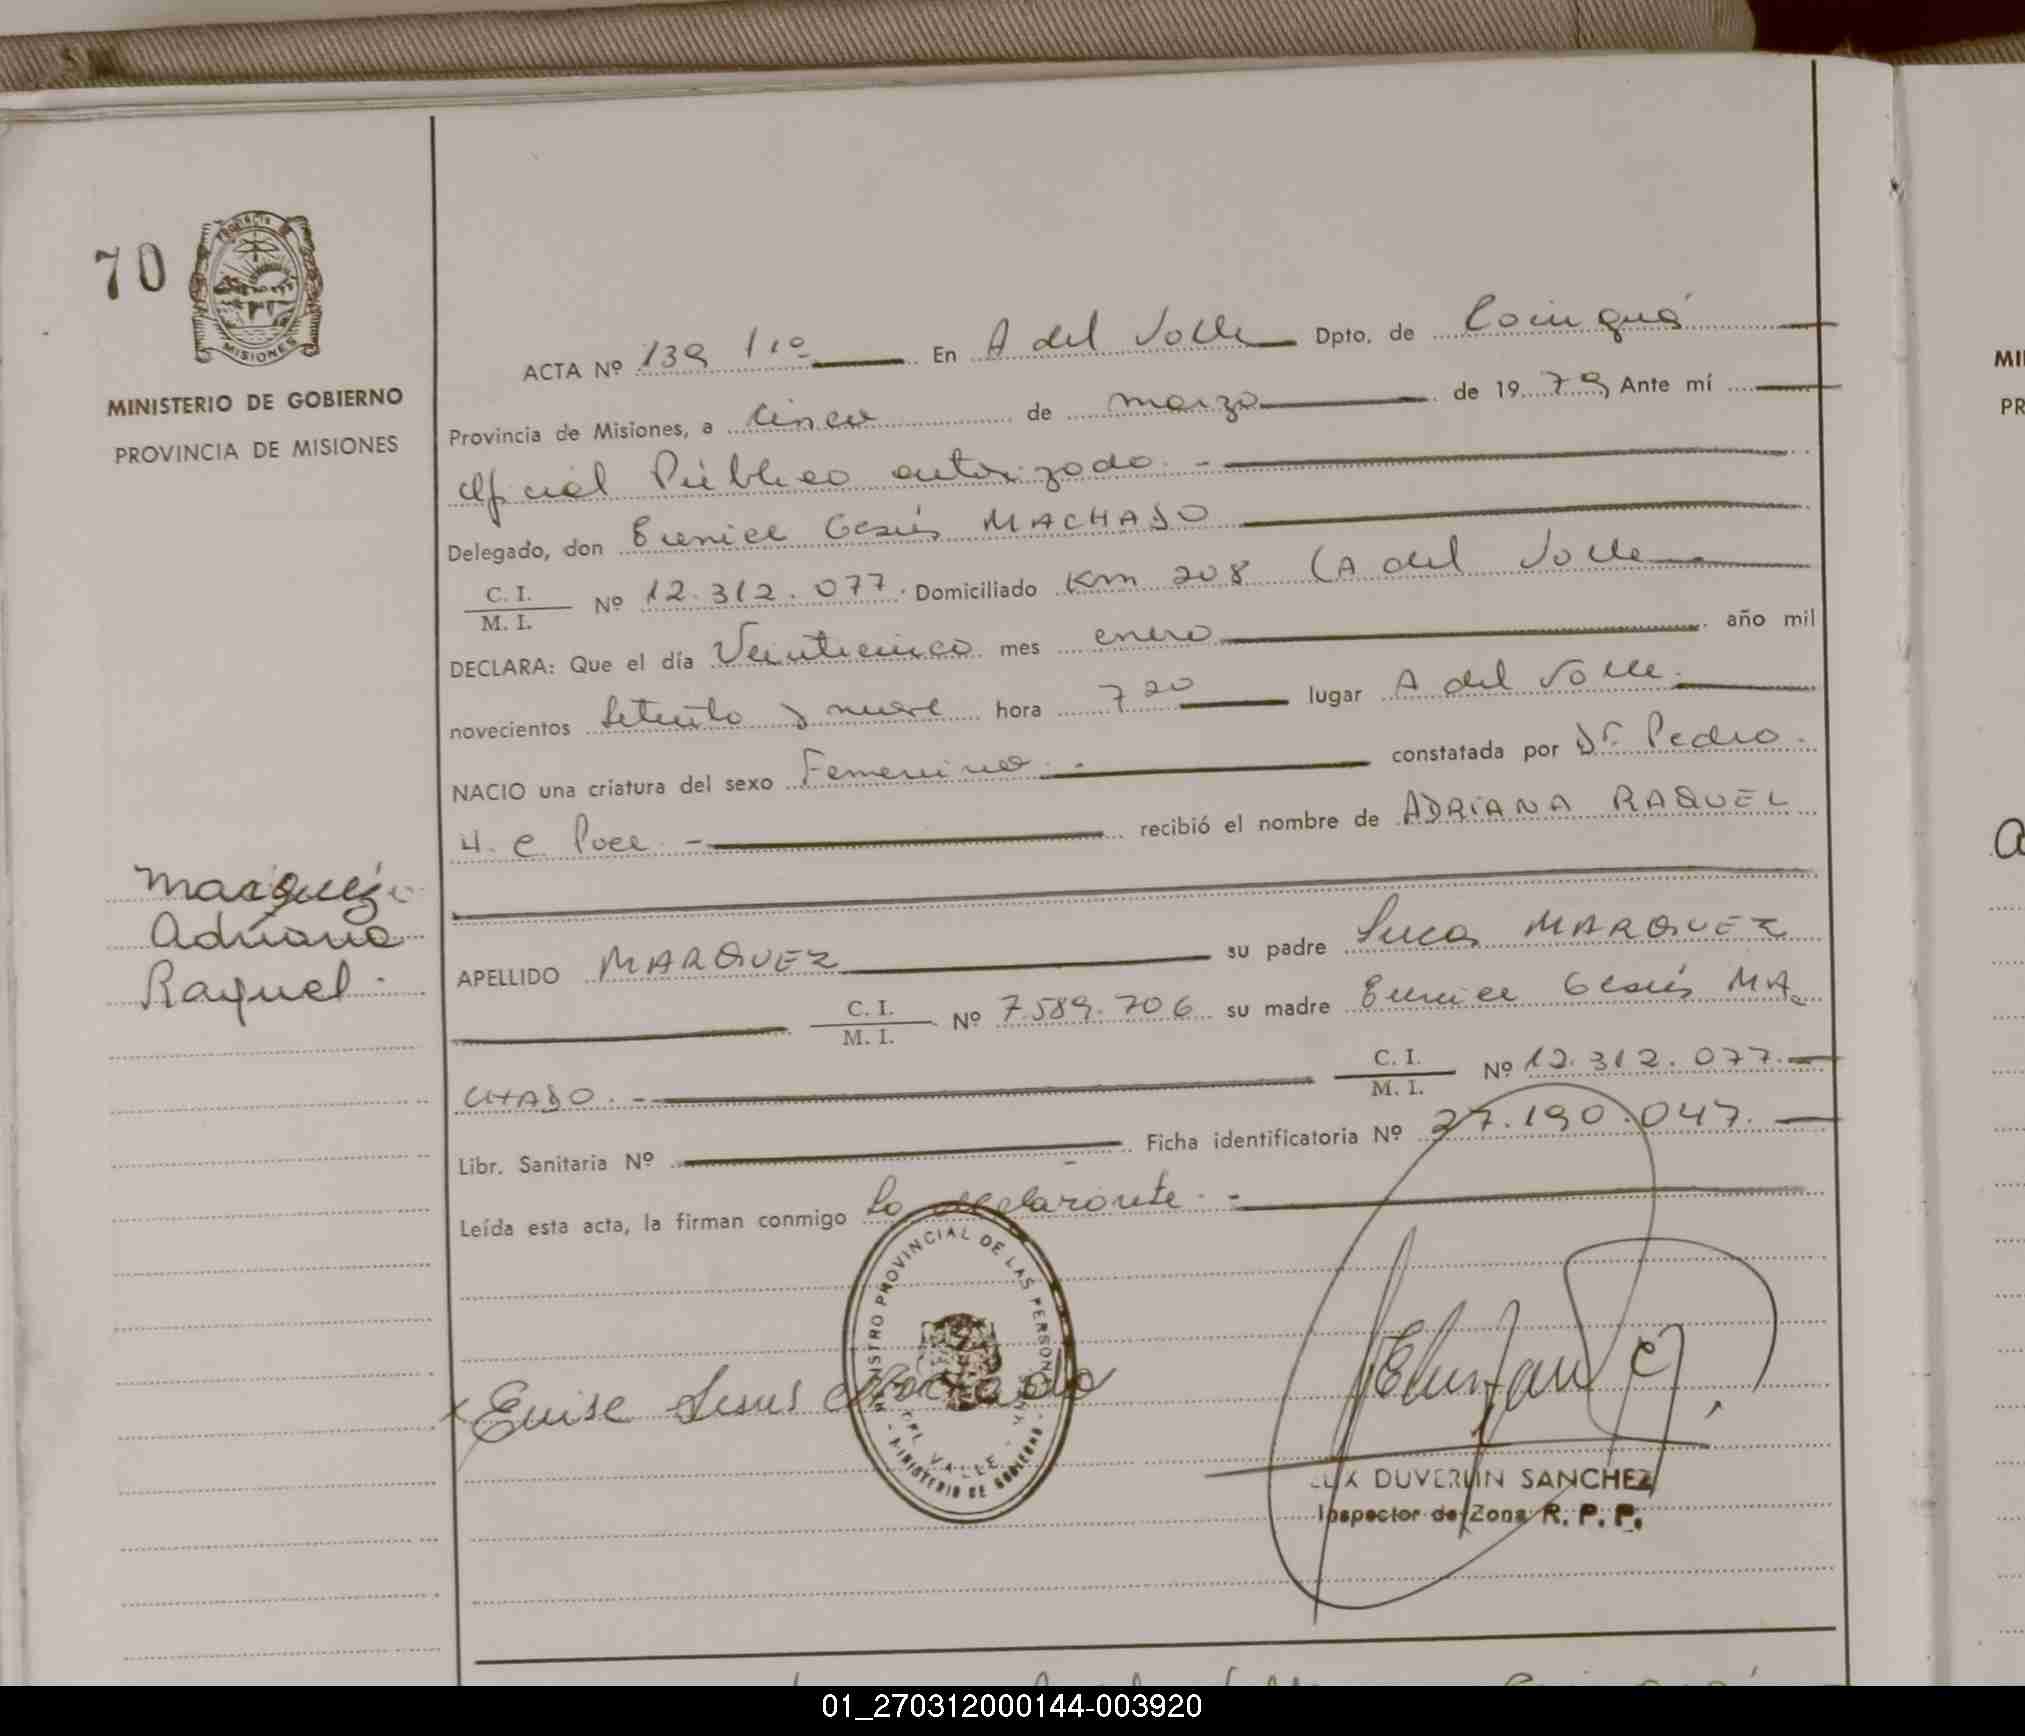 70
PROVINCIA
MISIONES
MINISTERIO DE GOBIERNO
PROVINCIA DE MISIONES
Marquez
Adriana
Raquel.
ACTA Nº 139 1ro En A del Valle Dpto. de Cainguá
Provincia de Misiones, a cinco de marzo de 1979 Ante mí
Oficial Público autorizado. -
Delegado, don Eunice Gesús MACHADO
C. I.
M. I. Nº 12.312.077. Domiciliado Km 208 (A del Valle
DECLARA: Que el día Veinticinco mes enero año mil
novecientos Setenta y nueve hora 7 20 lugar A del Valle.
NACIO una criatura del sexo Femenino. - constatada por Dr. Pedro.
H. C. - recibió el nombre de ADRIANA RAQUEL
APELLIDO MARQUEZ su padre Lucas MARQUEZ
C. I.
M. I. Nº 7.589.706 su madre Eunice Gesús MA
CHADO. - C. I.
M. I. Nº 12.312.077.
Libr. Sanitaria Nº Ficha identificatoria Nº 27.190.047.
Leída esta acta, la firman conmigo La declarante. -
REGISTRO PROVINCIAL DE LAS PERSONAS
DEL VALLE
- MINISTERIO DE GOBIERNO -
x Eunise Jesus Machado
DUVERLIN SANCHEZ
Inspector de Zona R. P. P.
MI
PR
01_270312000144-003920